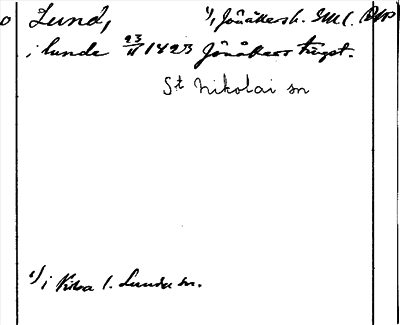 Lund, 1/, Jönåkersh. SML.
i lunde 23/11 1423 Jönåkers tingst.
St Nikolai sn
1/, i Kila l. Lunda sn.